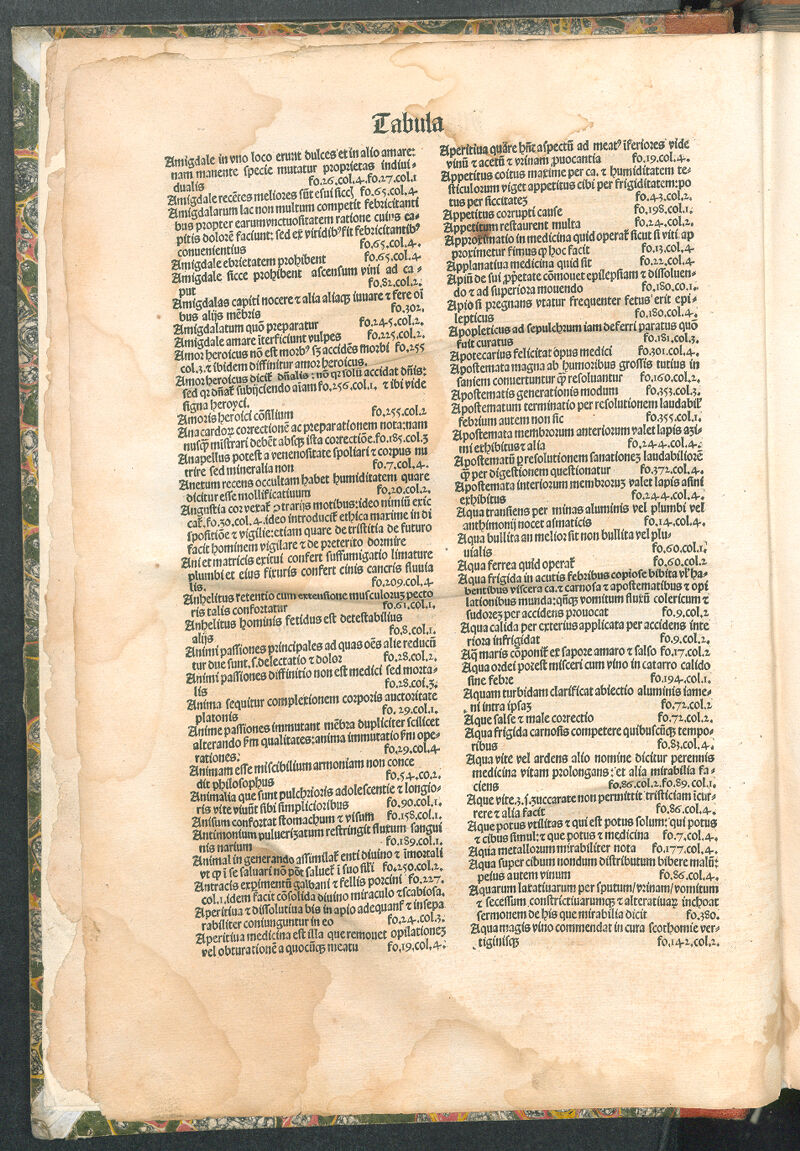 Tabula
Amigdale in vno loco erunt dulces et in alio amare:
nam manente specie mutatur proprietas indiui-
dualis fo.26.col.4.fo.27.col.1
Amigdale recētes meliores sūt esui siccꝭ fo.65.col.4.
Amigdalarum lac non multum competit febricitanti
bus propter earum vnctuositatem ratione cuius ca-
pitis dolorē faciunt: sed ex viridibꝰ fit febricitantibꝰ
conuenientius fo.65.col.4.
Amigdale ebrietatem prohibent fo.65.col.4
Amigdale sicce prohibent ascensum vini ad ca-
put fo.82.col.2.
Amigdalas capiti nocere ⁊ alia aliaqꝫ iuuare ⁊ fere oī
bus alijs mēbris fo.302.
Amigdalatum quō preparatur fo.245.col.2.
Amigdale amare īterficiunt vulpes fo.225.col.2.
Amor heroicus nō est morbꝰ sꝫ accidēs morbi fo.255
col.3.⁊ ibidem diffinitur amor heroicus.
Amor heroicus dicit̃ dn̄alis: nō qꝛ solū accidat dn̄is:
sed qꝛ dn̄at̃ subijciendo aīam fo.256.col.1. ⁊ ibi vide
signa heroyci.
Amoris heroici cōsilium fo.255.col.2
Anacardoꝝ correctionē ac preparationem nota: nam
nusqꝫ ministrari debēt absqꝫ ista correctiōe.fo.185.col.3
Anapellus potest a venenositate spoliari ⁊ corpus nu
trire sed mineralia non fo.7.col.4.
Anetum recens occultam habet humiditatem quare
dicitur esse mollificatiuum fo.20.col.2.
Angustia cor vexat̃ ꝯtrarijs motibus: ideo nimiū exic
cat̃.fo.30.col.4.ideo introducit̃ ethica maxime in di
spositiōe ⁊ vigilie: etiam quare de tristitia de futuro
facit hominem vigilare ⁊ de preterito dormire
Ani et matricis exitui confert suffumigatio limature
plumbi et eius fixuris confert cinis cancris fluuia
lis. fo.209.col.4
Anhelitus retentio cum extensione musculorum pecto
ris talis confortatur fo.61.col.1.
Anhelitus hominis fetidus est detestabilius
alijs fo.8.col.1.
Animi passiones principales ad quas oēs alie reducū
tur due sunt.s.delectatio ⁊ dolor fo.28.col.2.
Animi passiones diffinitio non est medici sed morta-
lis fo.28.col.3.
Anima sequitur complexionem corporis auctoritate
platonis fo.29.col.1.
Anime passiones immutant mēbra dupliciter scilicet
alterando ẜm qualitates: anima immutatio ẜm ope-
rationes: fo.29.col.4
Animam esse miscibilium armoniam non conce
dit philosophus fo.54.co.2.
Animalia que sunt pulchrioris adolescentie ⁊ longio-
ris vite viuūt sibi simplicioribus fo.90.col.1.
Anisum confortat stomachum ⁊ visum fo.158.col.1.
Antimonium puluerizatum restringit fluxum sangui
nis narium fo.189.col.1.
Animal in generando assimilat̃ enti diuino ⁊ īmortali
vt qꝫ ī se saluari nō pōt saluet̃ ī suo sīli fo.250.col.2.
Antracis expimentū galbani ⁊ fellis porcini fo.227.
col.1.idem facit cōsolida diuino miraculo ⁊ scabiosa.
Aperitiua ⁊ dissolutiua bis in apio adequant̃ ⁊ insepa
rabiliter coniunguntur in eo fo.24.col.3.
Aperitiua medicina est illa que remouet opilationeꝫ
vel obturationē a quocūqꝫ meatu fo.19.col.4.
Aperitiua quare hn̄t aspectū ad meatꝰ īferiores vide
vinū ⁊ acetū ⁊ vrinam ꝓuocantia fo.19.col.4.
Appetitus coitus maxime per ca. ⁊ humiditatem te-
sticulorum viget appetitus cibi per frigiditatem: po
tus per siccitateꝫ fo.43.col.2.
Appetitus corrupti cause fo.198.col.1.
Appetitum restaurent multa fo.24.col.2.
Approximatio in medicina quid operat̃ sicut si viti ap
proximetur fimus qꝫ hoc facit fo.13.col.4.
Applanatiua medicina quid sit fo.22.col.4
Apiū de sui ꝓprietate cōmouet epilepsiam ⁊ dissoluen-
do ⁊ ad superiora mouendo fo.180.co.1.
Apio si pregnans vtatur frequenter fetus erit epi-
lepticus fo.180.col.4.
Apopleticus ad sepulchrum iam deferri paratus quō
fuit curatus fo.181.col.3.
Apotecarius felicitat opus medici fo.301.col.4.
Apostemata magna ab humoribus grossis tutius in
saniem conuertuntur qꝫ resoluantur fo.160.col.2.
Apostematis generationis modum fo.353.col.3.
Apostematum terminatio per resolutionem laudabil̃
febrium autem non sic fo.355.col.1.
Apostemata membrorum anteriorum valet lapis azi-
ni exhibitus ⁊ alia fo.244.col.4.
Apostematū ꝑ resolutionem sanationeꝫ laudabiliorē
qꝫ per digestionem questionatur fo.372.col.4.
Apostemata interiorum membroruꝫ valet lapis asini
exhibitus fo.244.col.4.
Aqua transiens per minas aluminis vel plumbi vel
anthimonij nocet asmaticis fo.14.col.4.
Aqua bullita an melior sit non bullita vel plu-
uialis fo.60.col.1.
Aqua ferrea quid operat̃ fo.60.col.2
Aqua frigida in acutis febribus copiose bibita vl̃ ha-
bentibus viscera ca.⁊ carnosa ⁊ apostematibus ⁊ opi
lationibus munda: qn̄qꝫ vomitum fluxū colericum ⁊
sudoreꝫ per accidens prouocat fo.9.col.2
Aqua calida per exterius applicata per accidens inte
riora infrigidat fo.9.col.2.
Aq̄ maris cōponit̃ ex sapore amaro ⁊ salso fo.17.col.2
Aqua ordei potest misceri cum vino in catarro calido
sine febre fo.194.col.1.
Aquam turbidam clarificat abiectio aluminis iame-
ni intra ipsaꝫ fo.72.col.2
Aque salse ⁊ male correctio fo.72.col.2.
Aqua frigida carnosis competere quibuscūqꝫ tempo-
ribus fo.83.col.4.
Aqua vite vel ardens alio nomine dicitur perennis
medicina vitam prolongans: et alia mirabilia fa-
ciens fo.86.col.2.fo.89.col.1.
Aque vite.3.s.zuccarate non permittit tristiciam īcur-
rere ⁊ alia facit fo.86.col.4.
Aque potus vtilitas ⁊ qui est potus solum: qui potus
⁊ cibus simul: ⁊ que potus ⁊ medicina fo.7.col.4.
Aqua metallorum mirabiliter nota fo.177.col.4.
Aqua super cibum nondum distributum bibere malū:
peius autem vinum fo.86.col.4.
Aquarum laxatiuarum per sputum/vrinam/vomitum
⁊ secessum constrictiuarumqꝫ ⁊ alteratiuaꝝ inchoat
sermonem de his que mirabilia dicit fo.380.
Aqua magis vino commendat in cura scothomie ver-
tiginisqꝫ fo.142.col.2.